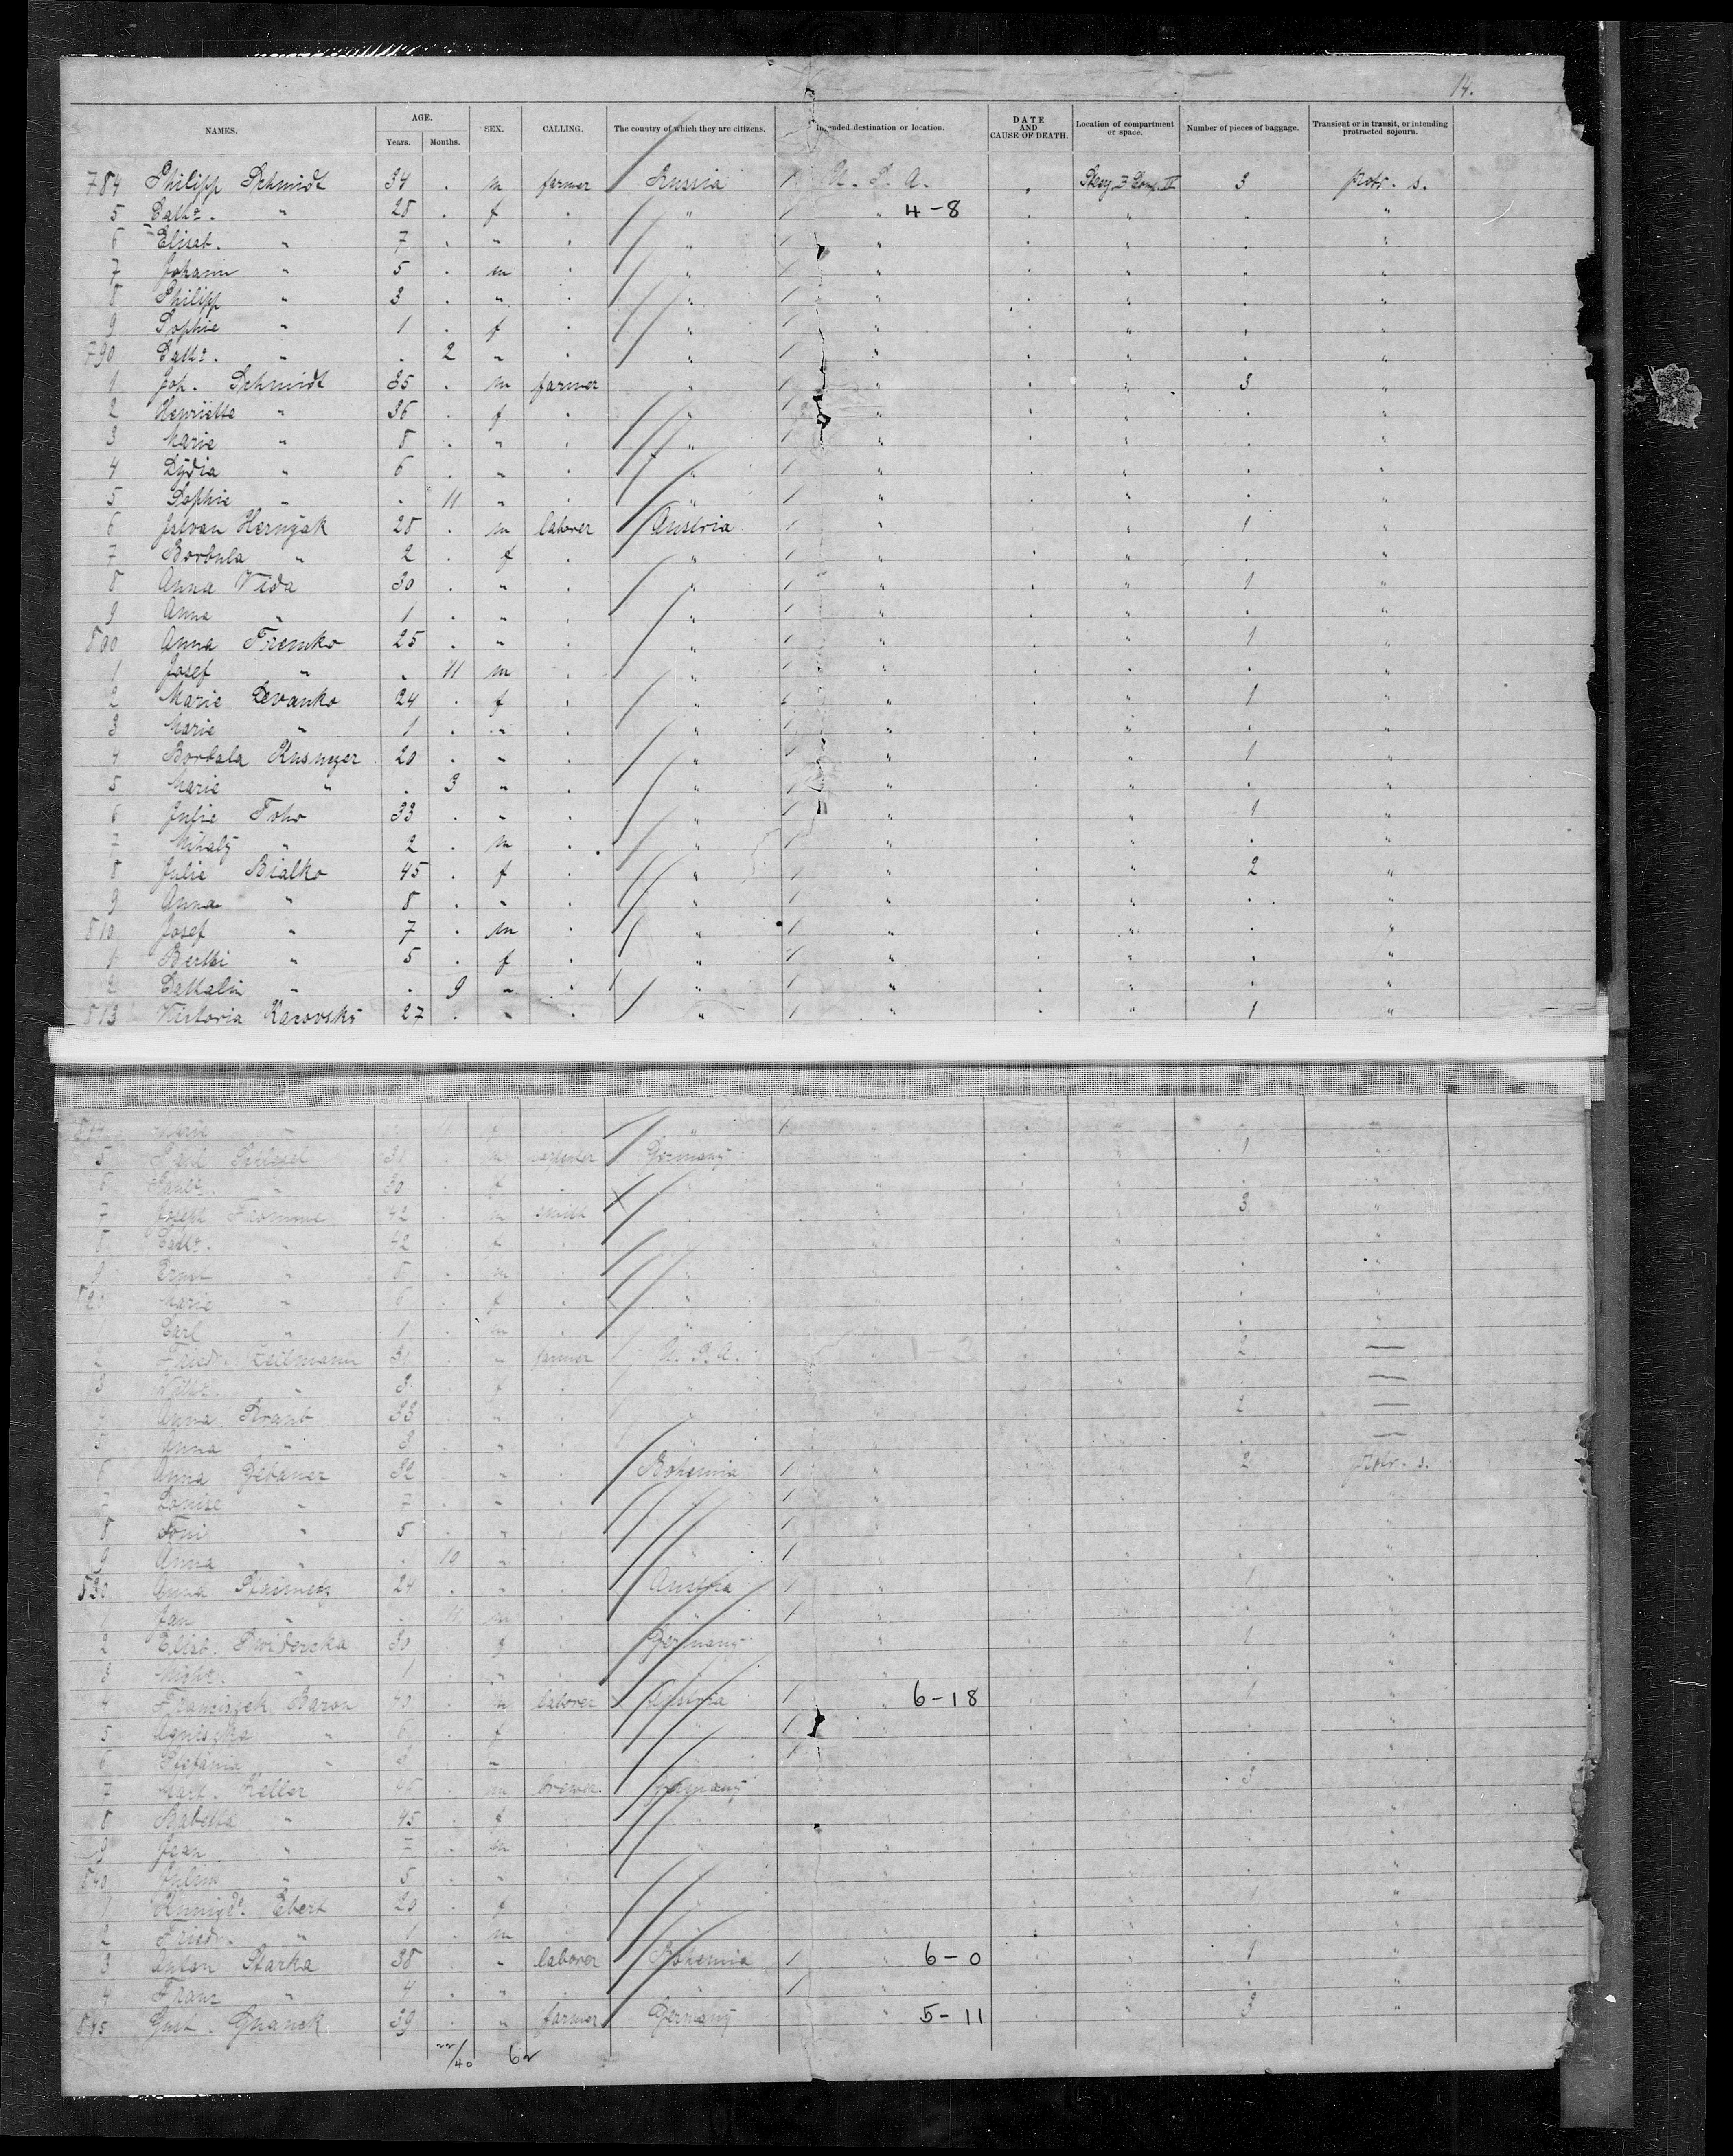 14.
NAMES. AGE. Years. Months. SEX. CALLING. The country of which they are citizens. Intended destination or location. DATE AND CAUSE OF DEATH. Location of compartment or space. Number of pieces of baggage. Transient or in transit, or intending protracted sojourn.
784 Philipp Schmidt 34 . m farmer Russia 1 U. S. A. . 3 protr. s.
5 Cathr. " 28 . f . " 1 " 4-8 . " . "
6 Elisab. " 7 . " . " 1 " . " . "
7 Johann " 5 . m . " 1 " . " . "
8 Philipp " 3 . " . " 1 " . " . "
9 Sophie " 1 . f . " 1 " . " . "
790 Cathr. " . 2 " . " 1 " . " . "
1 Joh. Schmidt 35 . m farmer " 1 " . " 3 "
2 Henriette " 36 . f . " 1 " . " . "
3 Marie " 8 . " . " 1 " . " . "
4 Lydia " 6 . " . " 1 " . " . "
5 Sophie " . 11 " . " 1 " . " . "
6 Istvan Hernyak 28 . m laborer Austria 1 " . " 1 "
7 Borbula " 2 . f . " 1 " . " . "
8 Anna Vida 30 . " . " 1 " . " 1 "
9 Anna " 1 . " . " 1 " . " . "
800 Anna Fremko 25 . " . " 1 " . " 1 "
1 Josef " . 11 m . " 1 " . " . "
2 Marie Devanko 24 . f . " 1 " . " 1 "
3 Marie " 1 . " . " 1 " . " . "
4 Borbala 20 . " . " 1 " . " 1 "
5 Marie " . 3 " . " 1 " . " . "
6 Julie Toho 33 . " . " 1 " . " 1 "
7 Mihaly " 2 . m . " 1 " . " . "
8 Julie Bialko 45 . f . " 1 " . " 2 "
9 Anna " 8 . " . " 1 " . " . "
810 Josef " 7 . m . " 1 " . " . "
1 Berthi " 5 . f . " 1 " . " . "
2 " . 9 " . " 1 " . " . "
813 Victoria Karovsky 27 . " . " 1 " . " 1 "
Marie " f . " 1 " . " . "
5 31 . m Germany " . " 1 "
6 " 30 . f . " " . " . "
7 Joseph Fromme 42 . m smith " " . " 3 "
8 Cathr. " 42 . f . " " . " . "
9 Ernst " 8 . m . " " . " . "
820 Marie " 6 . f . " " . " . "
1 Carl " 1 . m . " " . " . "
2 Friedr. Heilmann . " farmer U. S. A. " . " 2 —
3 " 3 . f . " " . " . —
4 Anna Straub 33 . " . " " . " 2 —
5 Anna " 3 . " . " " . " . —
6 Anna 32 . " . Bohemia 1 " . " 2 protr. s.
7 Louise " 7 . " . " 1 " . " . "
8 Toni " 5 . " . " 1 " . " . "
9 Anna " . 10 " . " 1 " . " . "
830 Anna Staimetz 24 . " . Austria 1 " . " 1 "
1 Jan " . 11 m . " 1 " . " . "
2 Elisb. Swiderska 30 . f . Germany " . " 1 "
3 " 1 . " . " " . " . "
4 Franciszek Baron 40 . m laborer Austria 1 " 6-18 . " 1 "
5 Agniszka " 6 . f . " 1 " . " . "
6 Stefania " 3 . " . " 1 " . " . "
7 Mart. Keller 45 . m brewer Germany " . " 3 "
8 Babetta " 45 . f . " " . " . "
9 Jean " 7 . m . " " . " . "
840 " 5 . " . " " . " . "
1 Kunigde. Ebert 20 . f . " " . " 1 "
2 Friedr. " 1 . m . " " . " . "
3 Anton Starka 38 . " laborer Bohemia 1 " 6-0 . " 1 "
4 Franz " 4 . " . " 1 " . " . "
845 Gust. Gnanck 39 . " farmer Germany " 5-11 . " 3 "
22/40 62